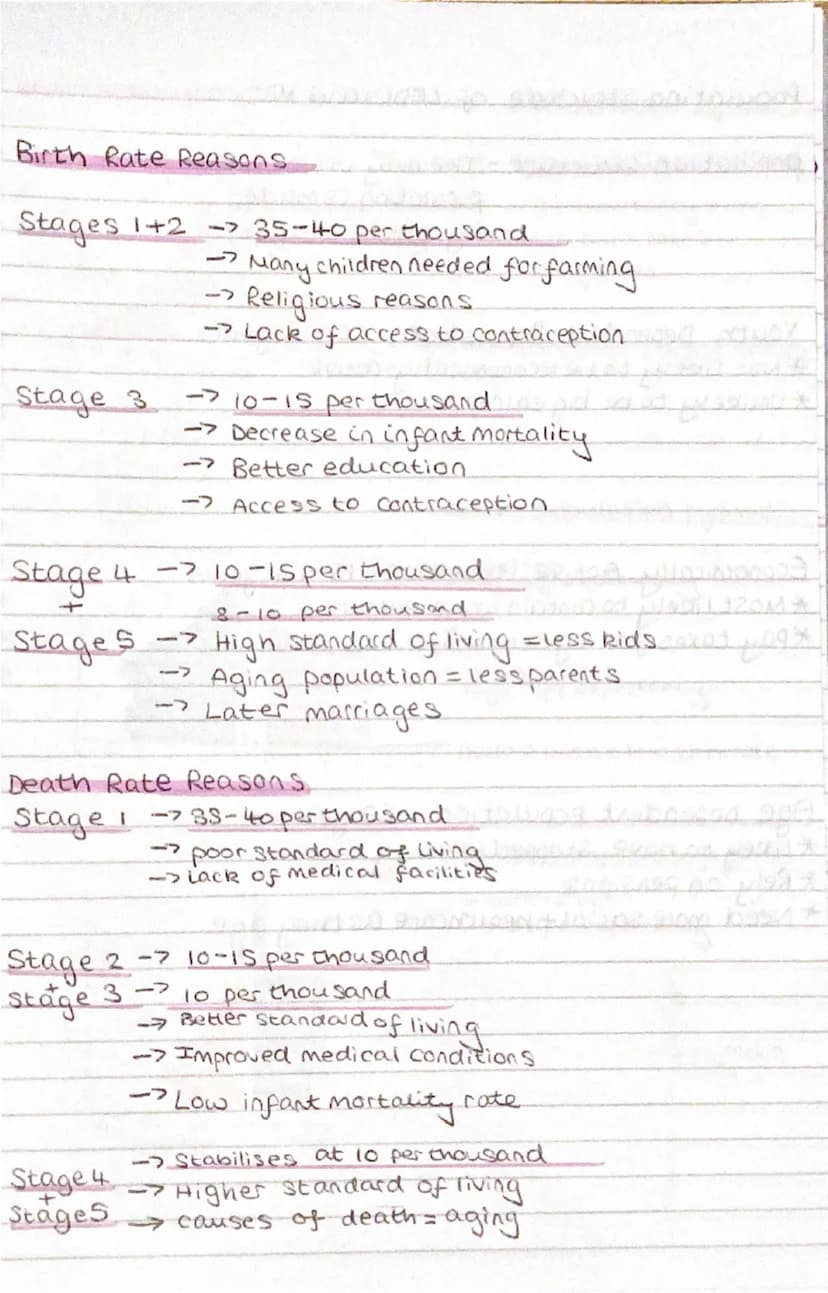 Birth Rate Reasons
Stages 1+2 -> 35-40 per thousand
-> Many children needed for farming
-> Religious reasons
-> Lack of access to contraception
Stage 3 -> 10-15 per thousand
-> Decrease in infant mortality
-> Better education
-> Access to contraception
Stage 4 -> 10-15 per thousand
+ 8-10 per thousand
Stage 5 -> High standard of living = less kids
-> Aging population = less parents
-> Later marriages
Death Rate Reasons
Stage 1 -> 35-40 per thousand
-> poor standard of living
-> Lack of medical facilities
Stage 2 -> 10-15 per thousand
+
Stage 3 -> 10 per thousand
-> Better standard of living
-> Improved medical conditions
-> Low infant mortality rate
-> Stabilises at 10 per thousand
Stage 4 -> Higher standard of living
+
Stage 5 -> causes of death = aging